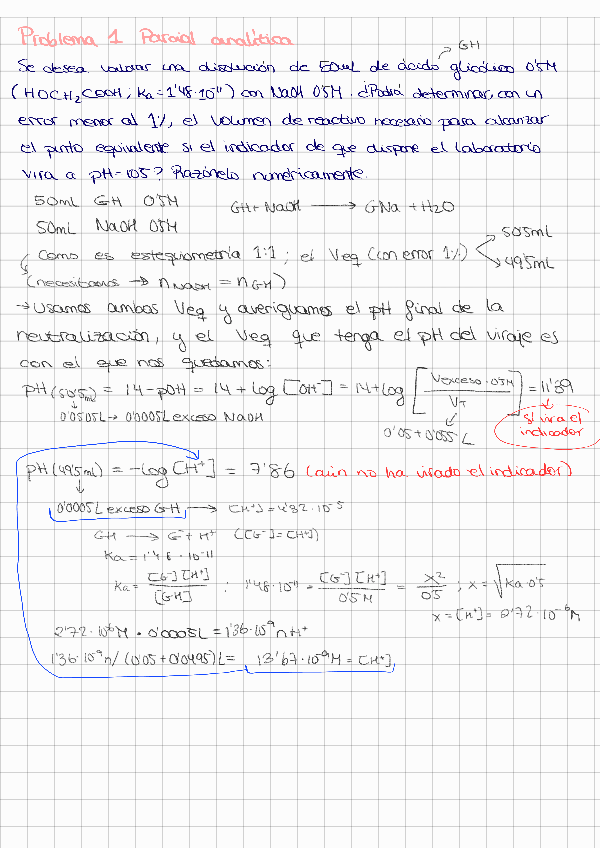 Problema 1 Parcial analítica
GH
Se desea valorar una disolución de 50ml de ácido glicólico 0'5M
(HOCH2COOH; Ka = 1'48·10^-11) con NaOH 0'5M. ¿Podrá determinar, con un
error menor al 1%, el volumen de reactivo necesario para alcanzar
el punto equivalente si el indicador de que dispone el laboratorio
vira a pH=10'5? Razónelo numéricamente.
50ml GH 0'5M
GH + NaOH → GNa + H2O
50mL NaOH 0'5M
50'5mL
Como es estequiometría 1:1; el Veq (con error 1%)
49'5mL
(necesitamos → nNaOH = nGH)
→ Usamos ambos Veq y averiguamos el pH final de la
neutralización, y el Veq que tenga el pH del viraje es
con el que nos quedamos:
pH (50'5mL) = 14 - pOH = 14 + log [OH-] = 14 + log [Vexceso · 0'5M / VT] = 11'39
0'0505L → 0'0005L exceso NaOH
0'05 + 0'055 L
sí vira el
indicador
pH (49'5ml) = -log [H+] = 7'86 (aún no ha virado el indicador)
0'0005L exceso GH → [H+] = 4'82·10^-5
GH → G- + H+ ([G-] = [H+])
Ka = 1'48·10^-11
Ka = [G-][H+] / [GH] ; 1'48·10^-11 = [G-][H+] / 0'5M = x² / 0'5 ; x = √Ka·0'5
x = [H+] = 2'72·10^-6 M
2'72·10^-6 M · 0'0005L = 1'36·10^-9 n H+
1'36·10^-9 n / (0'05 + 0'0495)L = 13'67·10^-9 M = [H+]